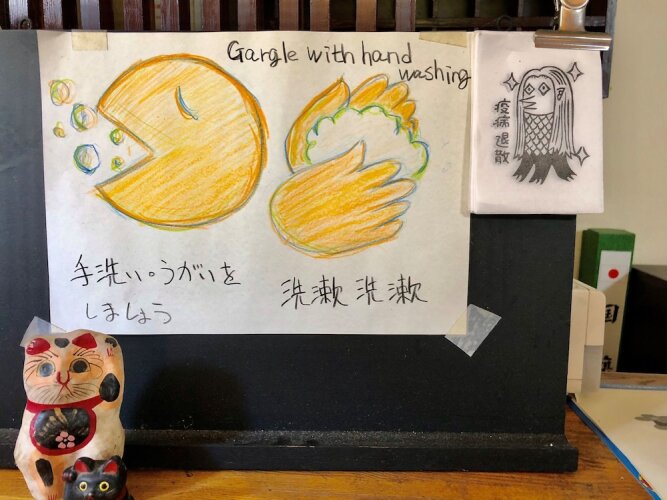 Gargle with hand
washing
手洗い。うがいを
しましょう
洗漱 洗漱
疫病退散
国